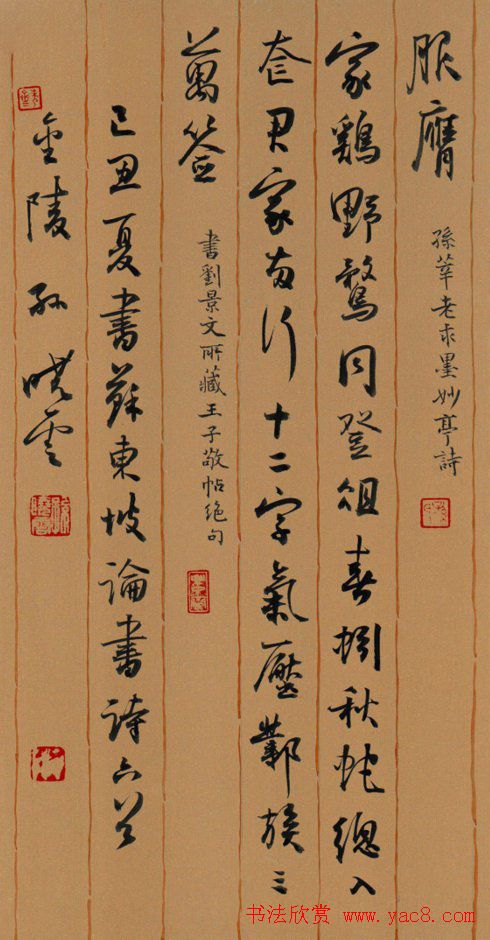 服膺
孫莘老求墨妙亭詩
家鷄野鶩同登俎春蚓秋蛇總入
奩君家兩行十二字氣壓鄴侯三
萬簽
書劉景文所藏王子敬帖絶句
己丑夏書蘇東坡論書詩六首
金陵孫曉雲
书法欣赏 www.yac8.com